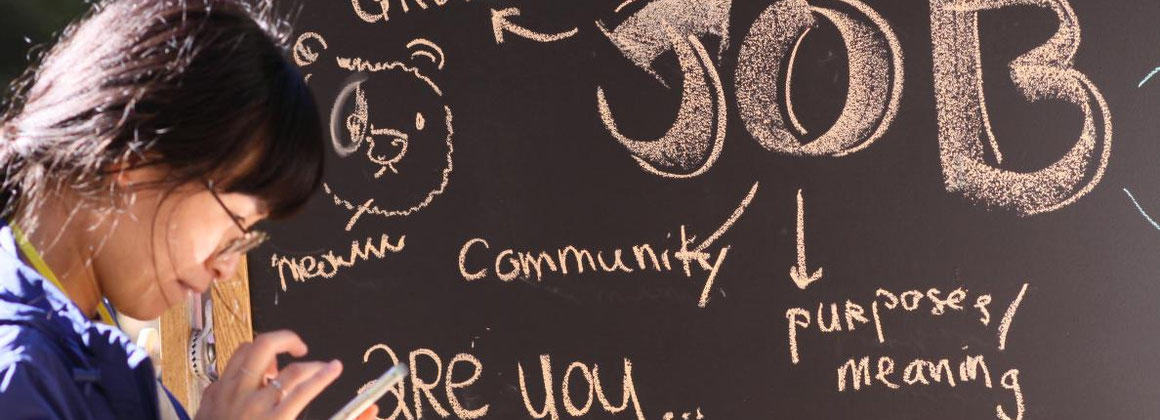 JOB
meowww
Community
purposes/
meaning
are you